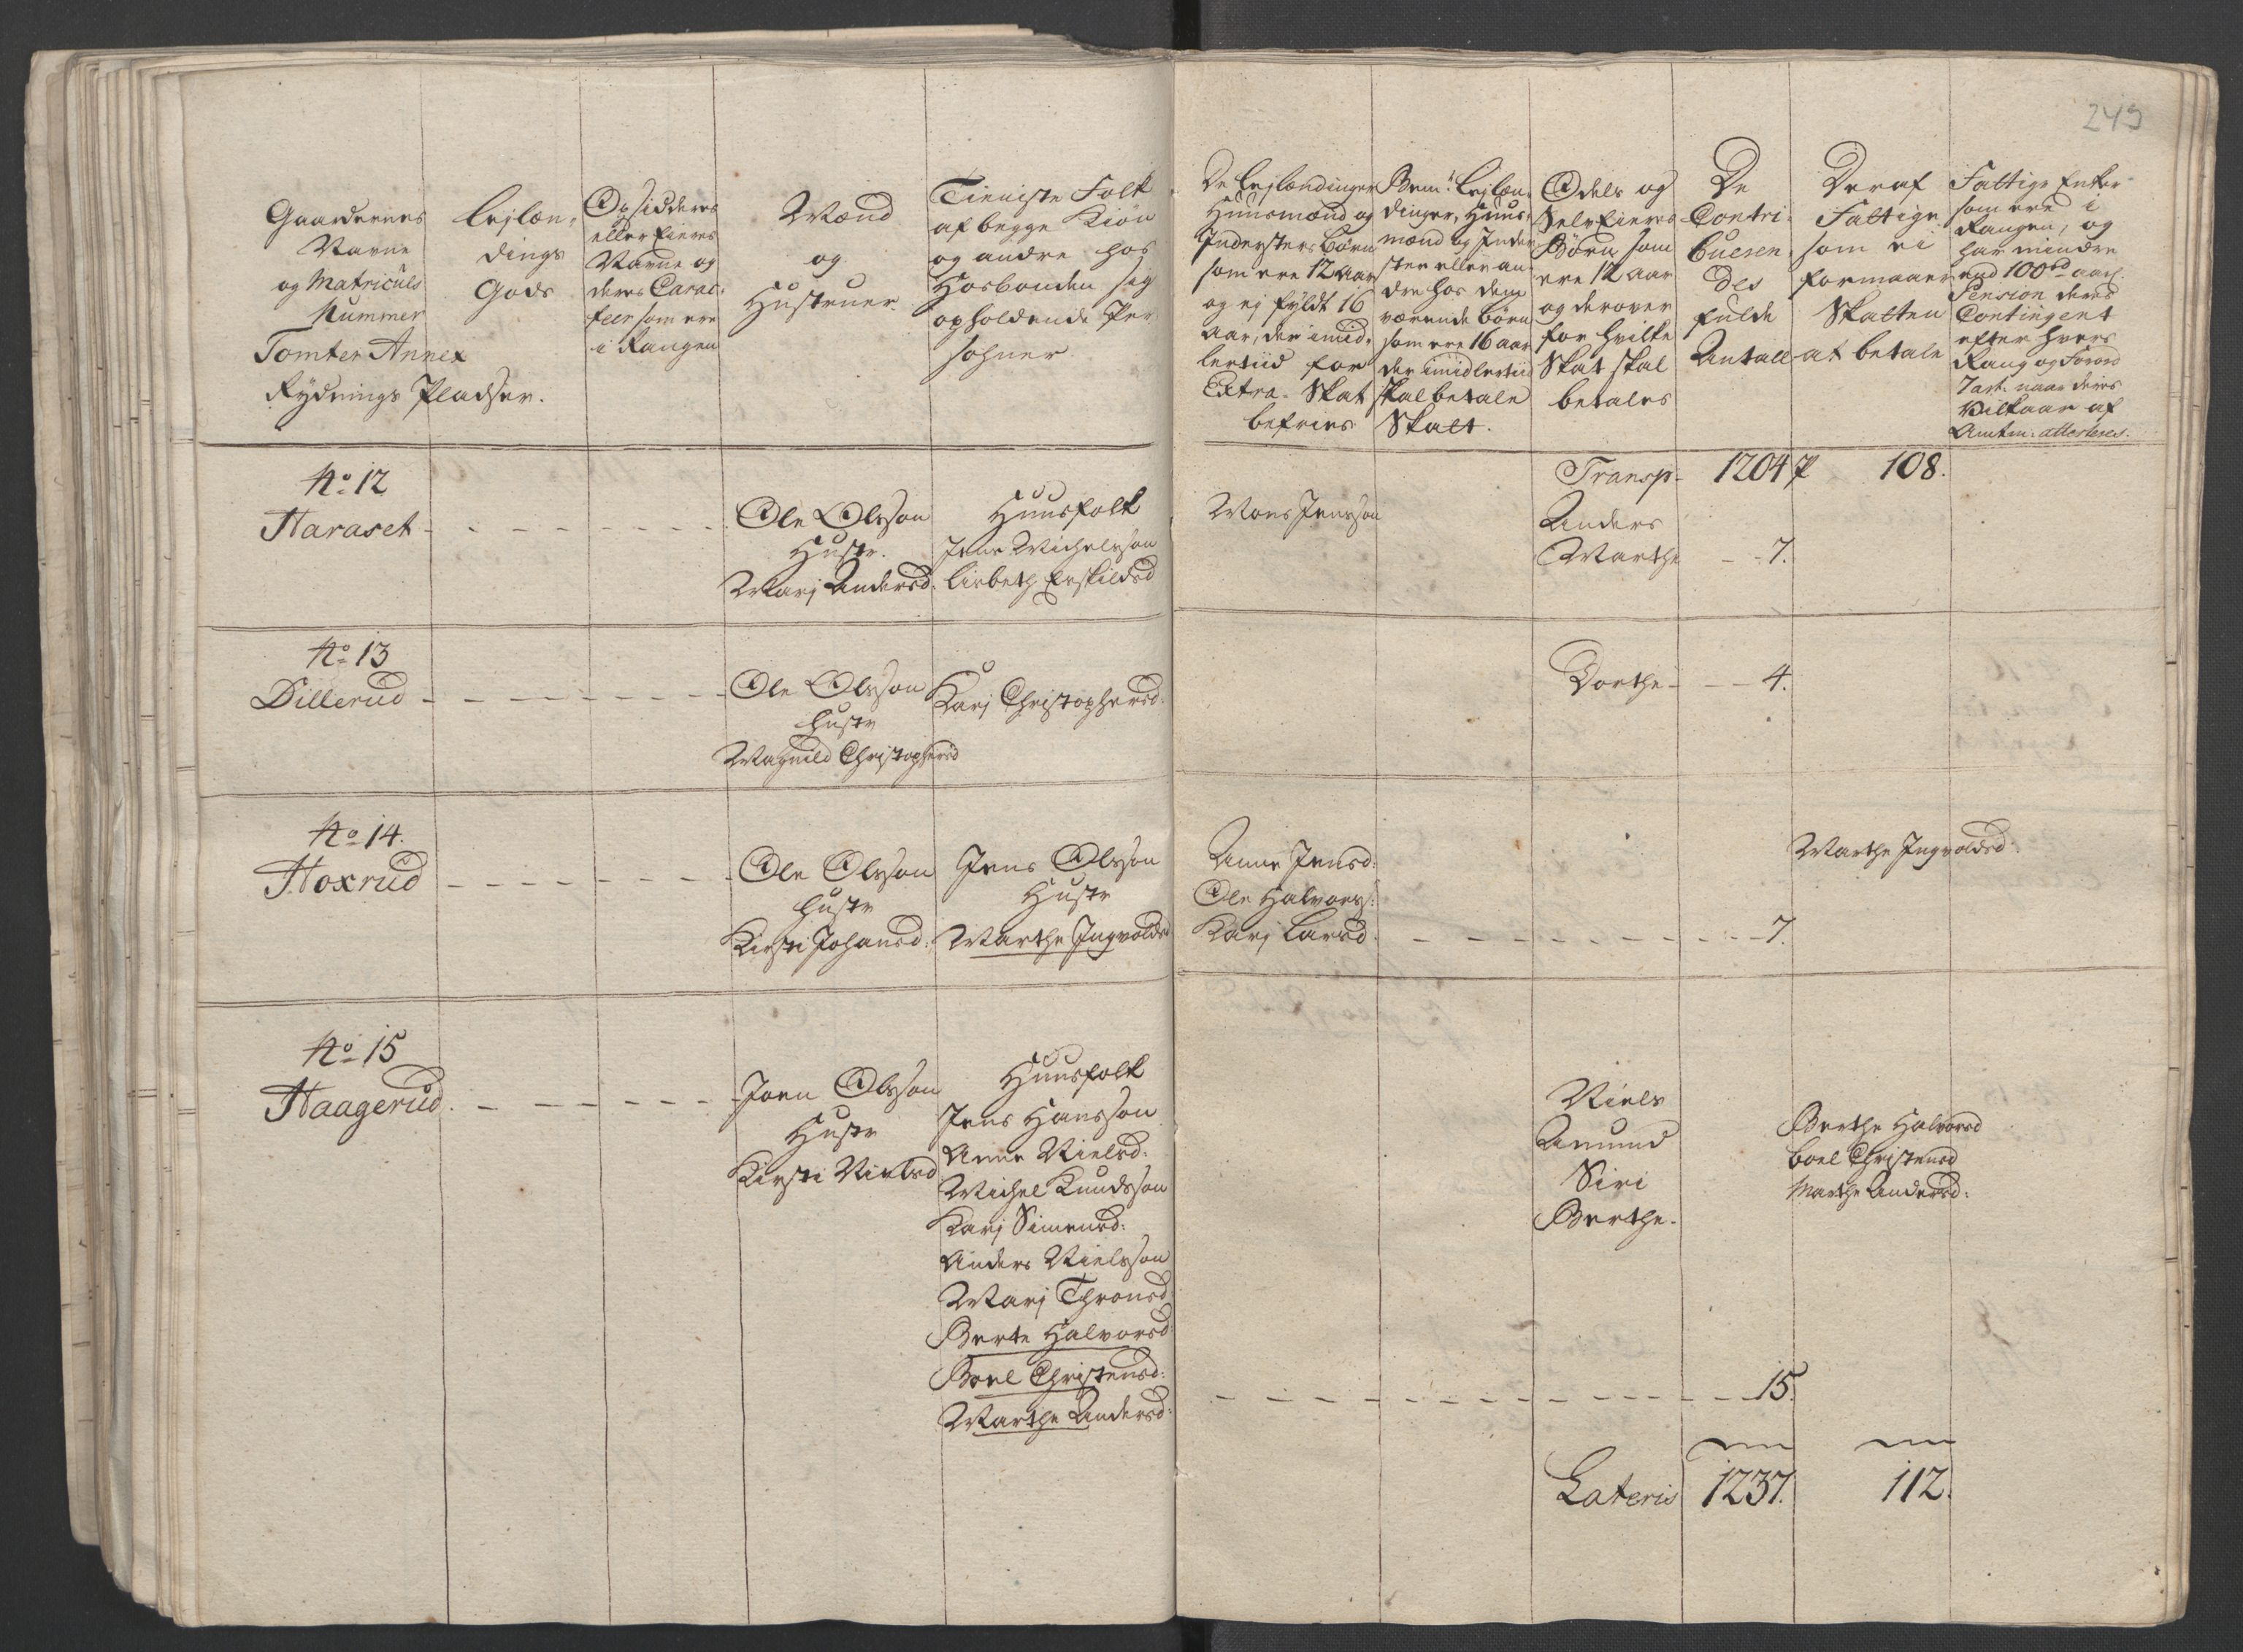 249
Gaardernes
Navne
og Matriculs
Nummer
Tomter Annex
Rydnings Pladser.
Lejlæn-
dings
Gods
Opsidderes
eller Eieres
Navne og
deres Carac-
teer som ere
i Rangen
Mænd
og
Hustruer.
Tieniste Folk
af begge Kiøn
og andre hos
Hosbonden sig
opholdende Per
sohner
De Lejlændinger
Huusmænd og
Indersters Børn
som ere 12 Aar
og ej fyldt 16
Aar, der imid-
lertiid for
Extra Skat
befries
Bem.te Lejlæn-
dinger, Huus-
mænd og Inder
ster eller an-
dre hos dem
værende Børn
som ere 16 aar
der imidlertiid
skal betale
Skatt.
Odels og
Selv Eieres
Børn som
ere 12 Aar
og derover
for hvilke
Skat skal
betales
De
Contri-
buerer
des
fulde
Antall
Deraf
Fattige
som ei
formaaer
Skatten
at betale
Fattige Enker
som ere i
Rangen, og
har mindre
end 100 rd aarl.
Pension deres
Contingent
efter hvers
Rang og Forord
7 art. naar deres
Vilkaar af
Amtm: attesteres.
Transp- 1204 108.
No 12
Haraset - - - - - - - -
Ole Olsson
Hustr.
Marj Andersd.
Huusfolk
Jens Michelsson
Lisbeth Eskildsd
Mons Jensson
Anders
Marthe - - 7.
No 13
Dillerud - - - - - - - -
Ole Olsson
Hustr
Magnild Christophersd
Karj Christophersd:
Dorthe - - - 4.
No 14.
Hoxrud - - - - - - - -
Ole Olsson
Hustr
Kirsti Johansd:
Jens Olsson
Hustr
Marthe Ingvoldsd
Anne Jensd:
Ole Halvors:
Karj Larsd. - - - - - - - - - - 7.
Marthe Ingvoldsd.
No 15
Haagerud. - - - - - - -
Joen Olsson
Hustr
Kirsti Nielsd
Huusfolk
Jens Hansson
Anne Nielsd:
Michel Knudsson
Karj Simensd:
Anders Nielsson
Marj Thronsd
Berte Halvorsd
Boel Christensd:
Marthe Andersd:
Niels
Amund
Siri
Berthe.
Berthe Halvorsd
Boel Christensd
Marthe Andersd:
- - - - - - - - - - - - 15.
Lateris 1237. 112.